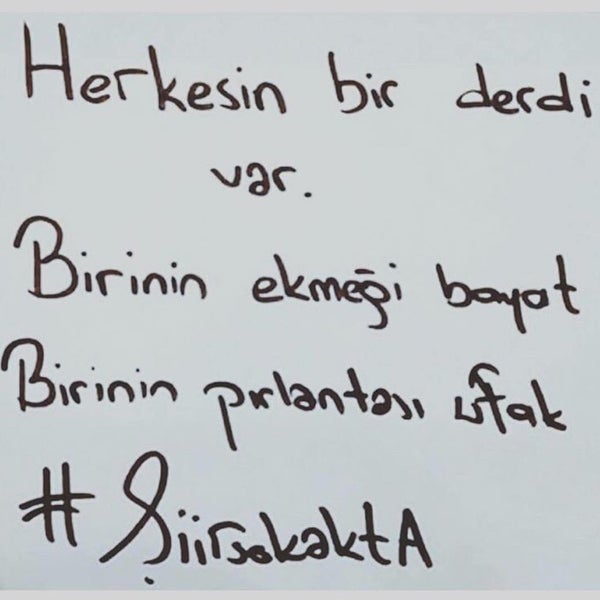 Herkesin bir derdi
var.
Birinin ekmeği bayat
Birinin pırlantası ufak
#ŞiirsokaktA